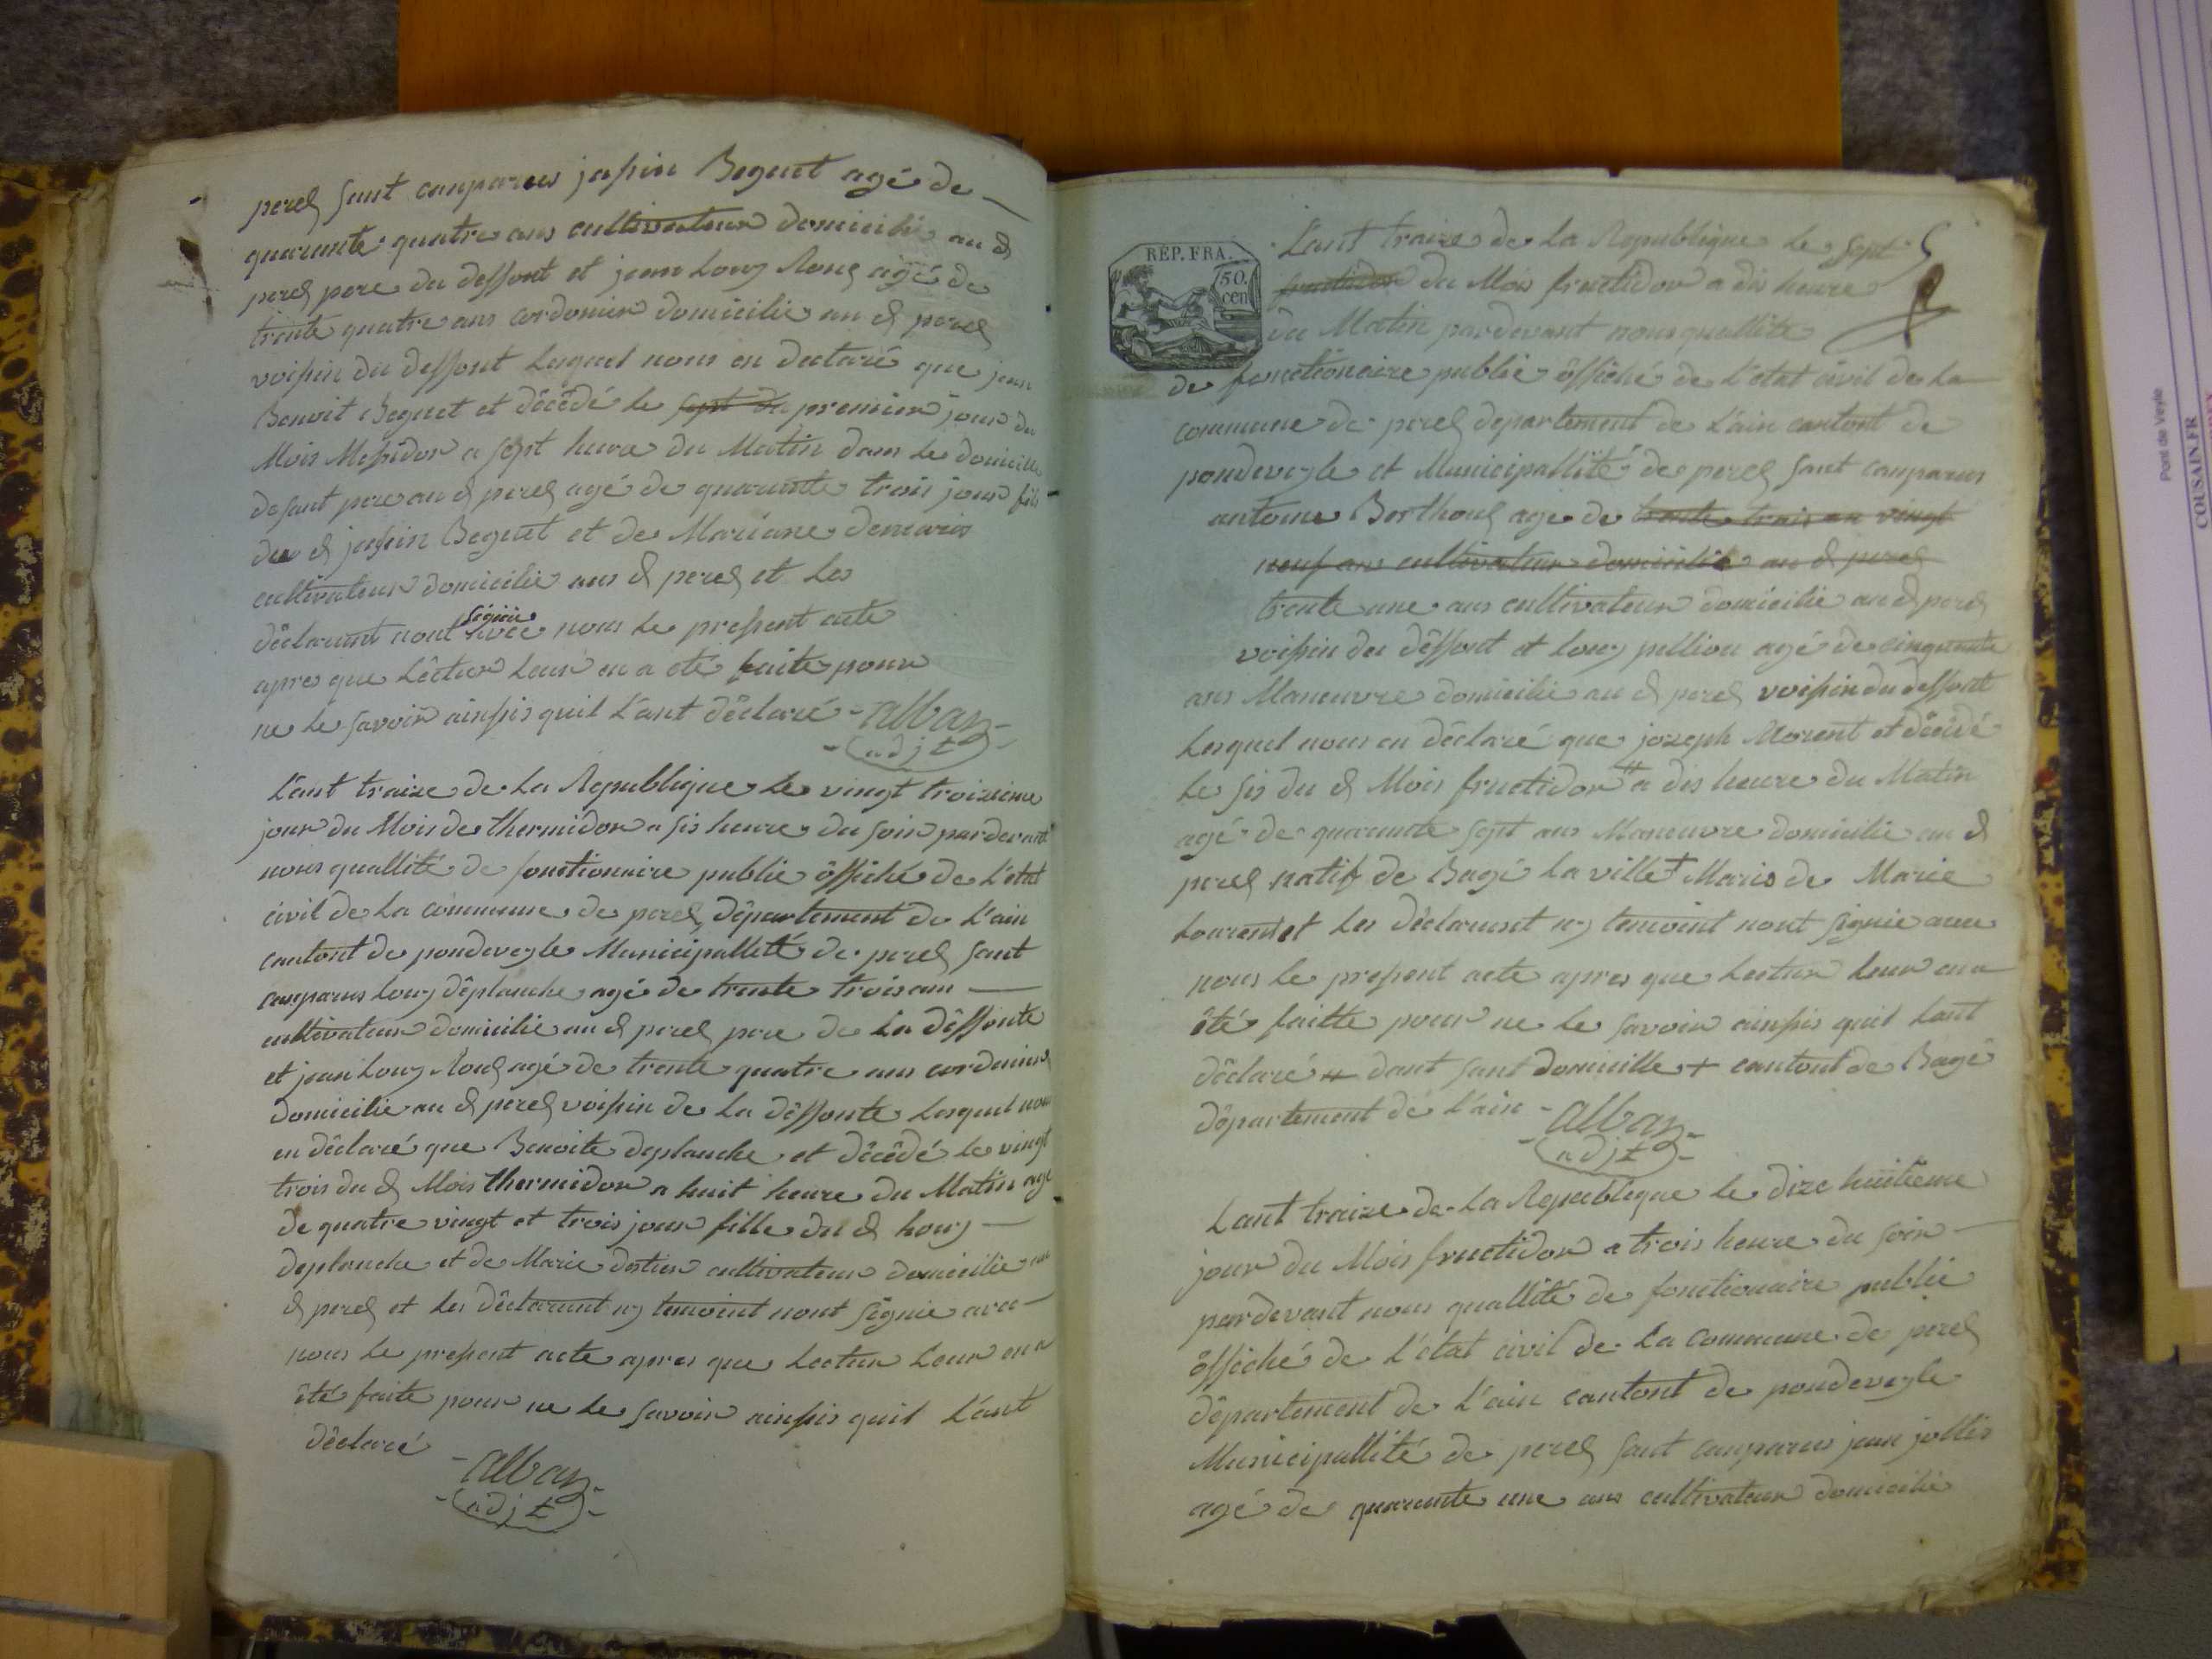 perex sont comparus jospin Beguet agé de
quarante quatre ans cultivateur domicilié au d
perex pere du deffont et jean Louy Roux agé de
trente quatre ans cordonier domicilie au d perex
voisin du deffont Lesquel nous en declaré que jean
Benoit Beguet et décédé le sept du premier jour du
Mois Messidor a sept heure du Matin dans le domicille
de sont pere au d perex agé de quarante trois jour fils
du d jospin Beguet et de Mariane demaris
cultivateur domicilie au d perex et les
déclarant nont signie avec nous le present acte
apres que Lêcteur Leur en a eté faite pour
ne le savoir ainsis quil L'ant déclaré - alban
adjt
L'ant traize de La Republique Le vingt troizieme
jour du Mois de thermidor a sis heure du soir pardevant
nous quallité de fonctionaire public ôffiché de L'etat
civil de La commune de perex département de L'ain
cantont de pondeveyle Municipallité de perex sont
comparus Louy déplanche agé de trente trois ans
cultivateur domicilie au d perex pere de La déffonte
et jean Louy Roux agé de trente quatre ans cordonier
domicilie au d perex voisin de La déffonte Lesquel nous
en déclaré que Benoite deplanche et décédé le vingt
trois du d Mois thermidor a huit heure du Matin age
de quatre vingt et trois jour fille du d Louy
deplanche et de Marie cultivateur domicilie au
d perex et les déclarant ny temoint nont signie avec
nous Le present acte apres que Lecteur Leur en a
été faite pour ne Le savoir ainsis quil L'ant
déclaré - alban
adjt
REP. FRA.
50.
cen
L'ant traize de La Republique Le sept
fructidor du Mois fructidor a dis heure
du Matin pardevant nous quallite
de fonctionaire public ôffiché de L'etat civil de La
commune de perex departement de L'ain cantont de
pondeveyle et Municipallité de perex sont comparus
antoine Berthoux age de trente trois an vingt
neuf ans cultivateur domicilié au d perex
trente une ans cultivateur domicilie au d perex
voisin du déffont et Louy pellion agé de cinquante
ans Maneuvre domicilie au d perex voisin du deffont
Lesquel nous en déclaré que jozeph Morent et décédé
Le sis du d Mois fructidor # a dis heure du Matin
agé de quarante sept ans Maneuvre domicilie au d
perex natif de Bagé la ville + Maris de Marie
Lourent et Les déclarant ny temoint nont signie avec
nous le present acte apres que Lecteur Leur en a
été faitte pour ne le savoir ainsis quil L'ant
déclaré # dant sant domicille + cantont de Bagé
département de L'ain - alban
adjt
Lant traize de La Republique le dize huitieme
jour du Mois fructidor a trois heure du soir
pardevant nous quallité de fonctionaire public
ôffiché de L'état civil de La commune de perex
département de L'ain cantont de pondeveyle
Municipallité de perex sant comparus jean jollis
agé de quarante une ans cultivateur domicilie
Pont de Veyle
COUSAIN.FR